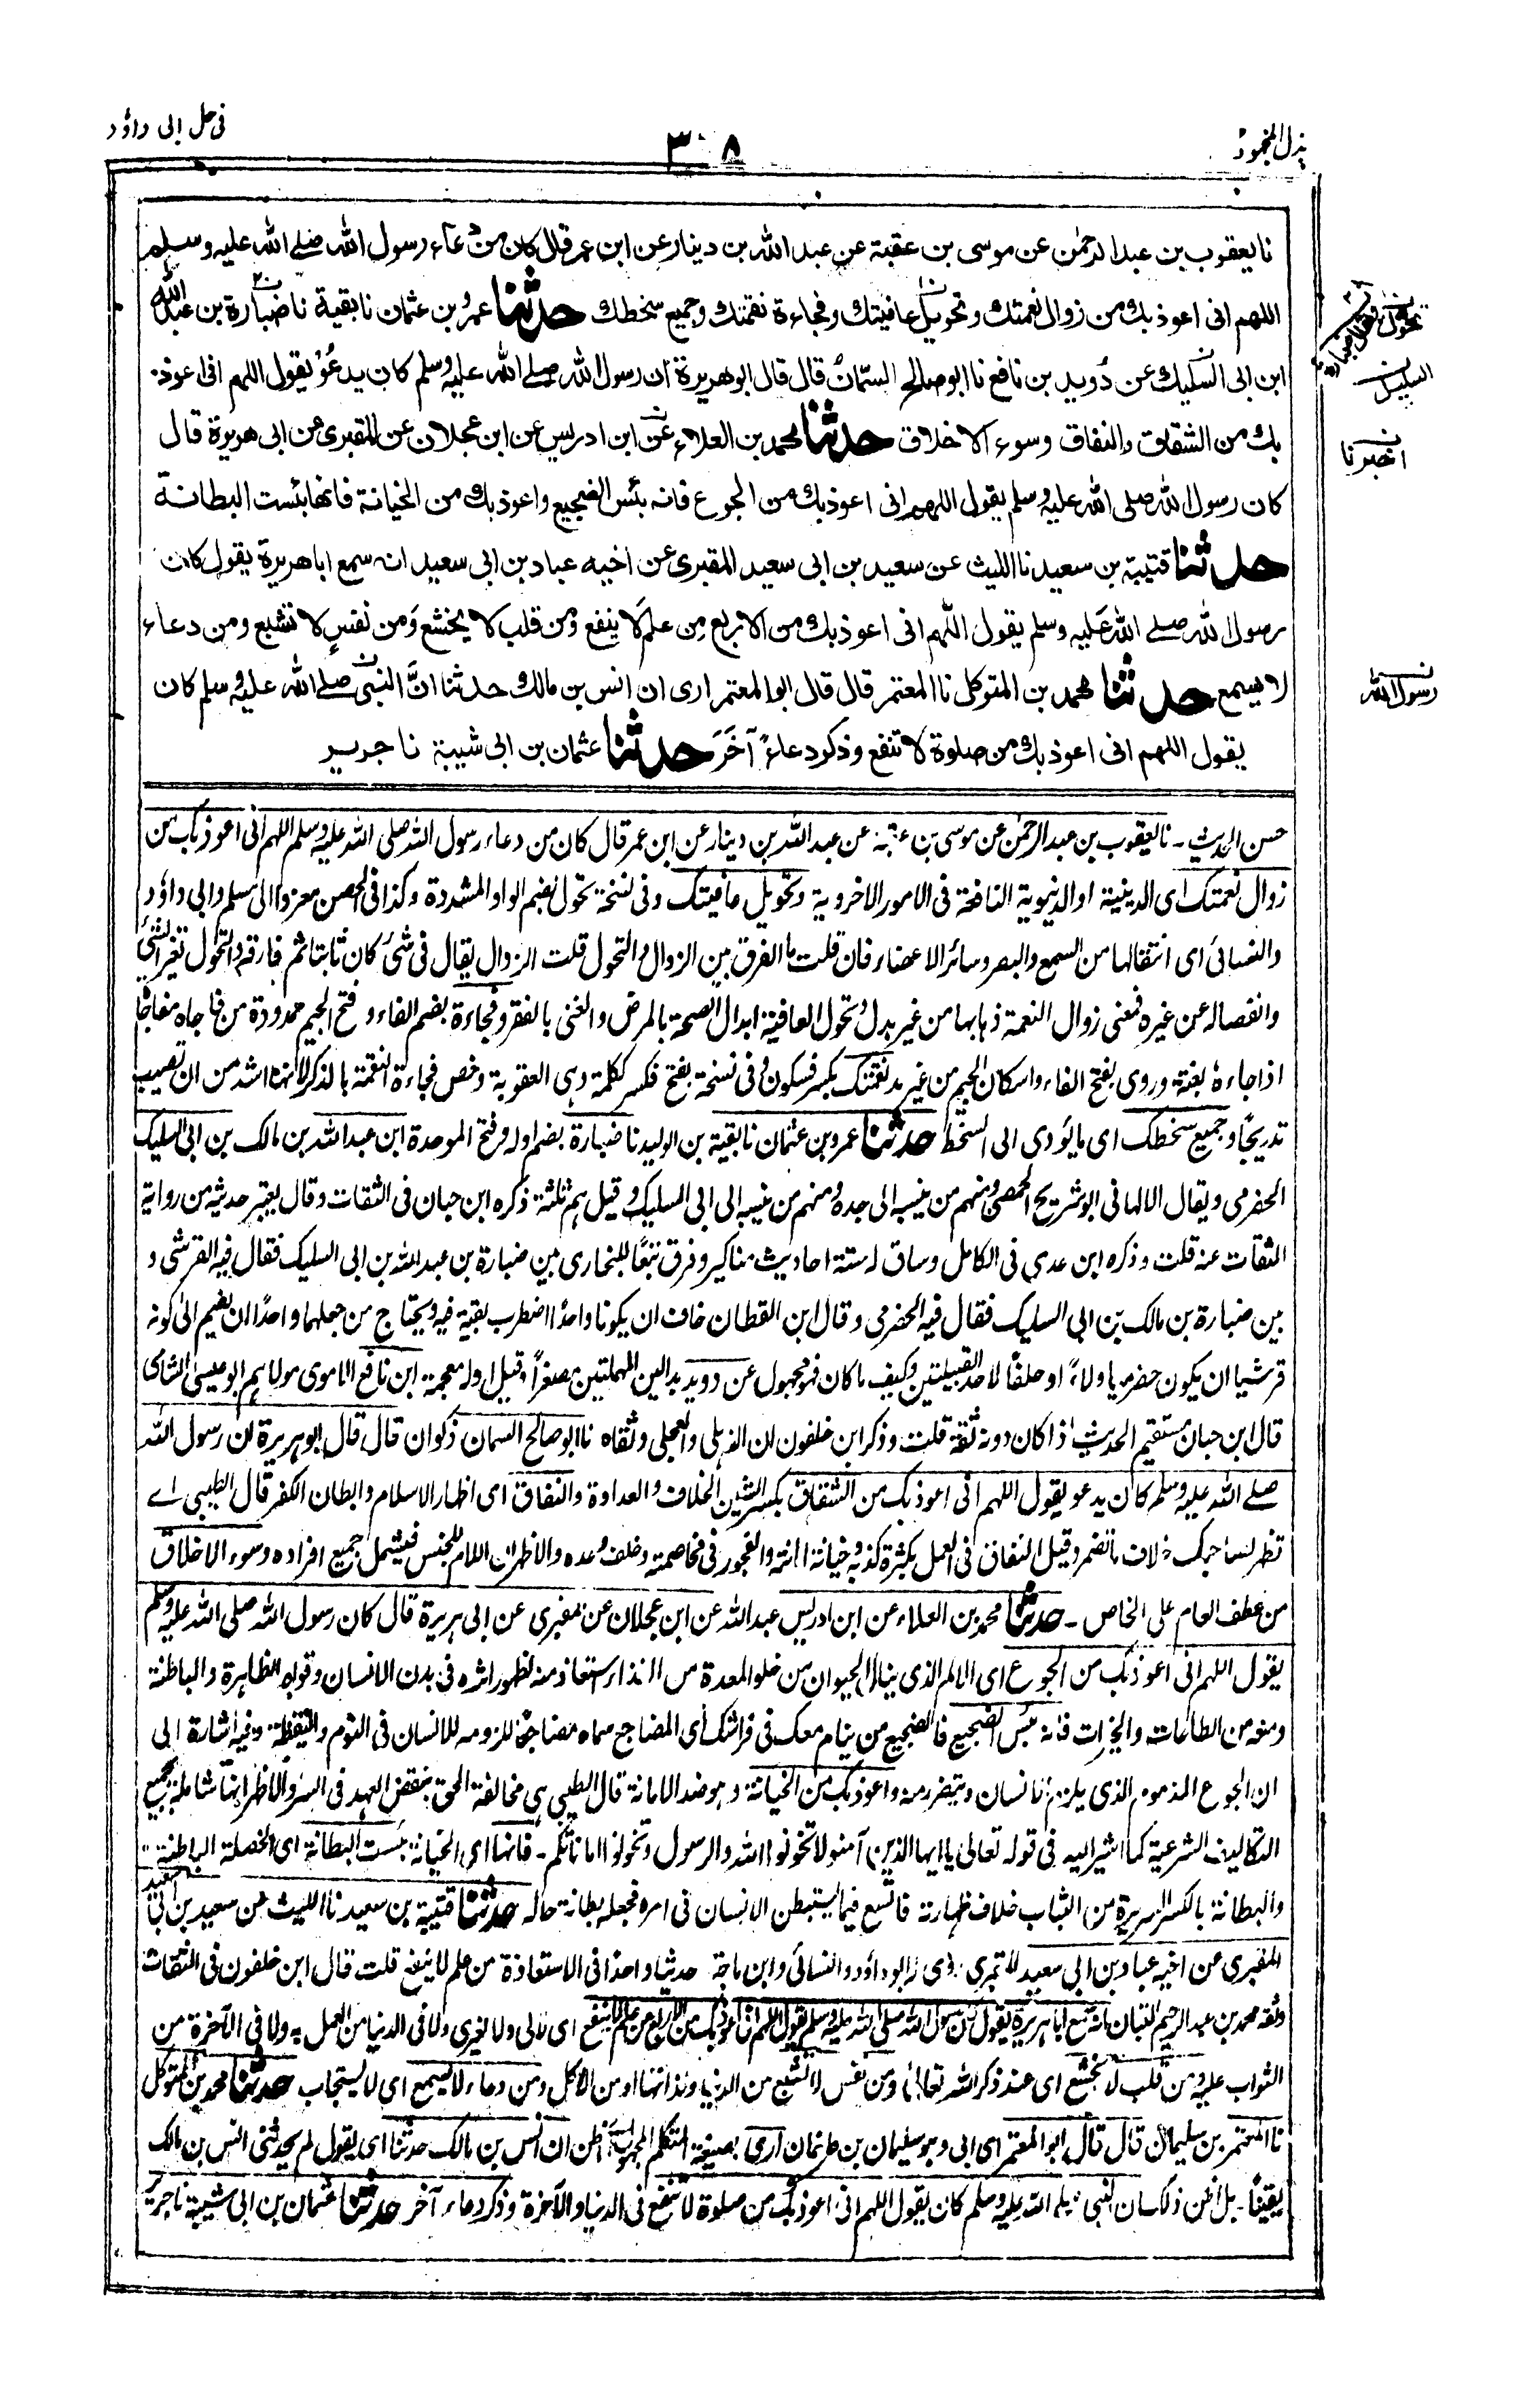 بذل المجهود
٣٠٨
فى حل ابى داؤد
نا يعقوب بن عبدالرحمٰن عن موسى بن عقبة عن عبد الله بن دينار عن ابن عمر قال كان من دعاء رسول الله صلے الله عليه وسلم
اللهم انى اعوذ بك من زوال نعمتك وتحويل عافيتك وفجاءة نقمتك وجميع سخطك حدثنا عمرو بن عثمان نا بقية نا ضبارة بن عبد الله
ابن ابى السليك عن دُويد بن نافع نا ابو صالح السمّانُ قال قال ابو هريرة ان رسول الله صلے الله عليه وسلم كان يدعُوْ يقول اللهم انى اعوذ
بك من الشقاق والنفاق وسوء الاخلاق حدثنا محمد بن العلاء عن ابن ادريس عن ابن عجلان عن المقبرى عن ابى هريرة قال
كان رسول الله صلى الله عليه وسلم يقول اللهم انى اعوذ بك من الجوع فانه بئس الضجيع واعوذ بك من الخيانة فانها بئست البطانة
حدثنا قتيبة بن سعيد نا الليث عن سعيد بن ابى سعيد المقبرى عن اخيه عباد بن ابى سعيد انه سمع ابا هريرة يقول كان
رسول الله صلے الله عليه وسلم يقول اللهم انى اعوذ بك من الاربع مِن علم لا ينفع ومن قلب لا يخشع وَمن نفسٍ لا تشبع ومن دعاء
لا يسمع حدثنا محمد بن المتوكل نا المعتمر قال قال ابو المعتمر ارى ان انس بن مالك حدثنا انَّ النبى صلے الله عليه وسلم كان
يقول اللهم انى اعوذ بك من صلوة لا تنفع وذكر دعاءً آخَرَ حدثنا عثمان بن ابى شيبة نا جرير
تحول
السليل
اخبرنا
رسول الله
حسن الحديث ـ نا يعقوب بن عبد الرحمٰن عن موسى بن عقبة عن عبد الله بن دينار عن ابن عمر قال كان من دعاء رسول الله صلى الله عليه وسلم اللهم انى اعوذ بك من
زوال نعمتك اى الدينية او الدنيوية النافعة فى الامور الاخروية وتحويل عافيتك وفى نسخة تحول بضم الواو المشددة وكذا فى الحصن معزوا الى مسلم وابى داؤد
والنسائى اى انتقالها من السمع والبصر وسائر الاعضاء فان قلت ما الفرق بين الزوال والتحول قلت الزوال يقال فى شئ كان ثابتا ثم فارقه والتحول تغير الشئ
وانفصاله عن غيره فمعنى زوال النعمة ذهابها من غير بدل وتحول العافية ابدال الصحة بالمرض والغنى بالفقر وفجاءة بضم الفاء وفتح الجيم ممدودة من فاجاه مفاجاة
اذا جاءه بغتة وروى بفتح الفاء واسكان الجيم من غير مد نقمتك بكسر فسكون وفى نسخة بفتح فكسر ككلمة وهى العقوبة وخص فجاءة النقمة بالذكر لانها اشد من ان تصيب
تدريجًا وجميع سخطك اى ما يؤدى الى السخط حدثنا عمرو بن عثمان نا بقية بن الوليد نا ضبارة بضم اوله وفتح الموحدة ابن عبد الله بن مالك بن ابى السليك
الحضرمى ويقال الالهانى ابو شريح الحمصى ومنهم من ينسبه الى جده ومنهم من ينسبه الى ابى السليك وقيل هم ثلثة ذكره ابن حبان فى الثقات وقال يعتبر حديثه من رواية
الثقات عنه قلت وذكره ابن عدى فى الكامل وساق له ستة احاديث مناكير وفرق تبعًا للبخارى بين ضبارة بن عبد الله بن ابى السليك فقال فيه القرشى و
بين ضبارة بن مالك بن ابى السليك فقال فيه الحضرمى وقال ابن القطان خاف ان يكونا واحدًا اضطرب بقية فيه ويحتاج من جعلهما واحدًا ان يضيم الى كونه
قرشيا ان يكون حضرميا ولاءً او حلفًا لاحد القبيلتين وكيف ما كان فهو مجهول عن دويد بدالين المهملتين مصغراً وقيل اوله معجمة ابن نافع الاموى مولاهم ابو عيسى الشامى
قال ابن حبان مستقيم الحديث اذا كان دونه ثقة قلت وذكر ابن خلفون ان الذهلى والعجلى وثقاه نا ابو صالح السمان ذكوان قال قال ابو هريرة ان رسول الله
صلے الله عليه وسلم كان يدعو يقول اللهم انى اعوذ بك من الشقاق بكسر الشين الخلاف والعداوة والنفاق اى اظهار الاسلام وابطان الكفر قال الطيبى اے
تظهر لصاحبك خلاف ما تضمر وقيل النفاق فى العمل بكثرة كذبه وخيانة امانته والفجور فى مخاصمته وخلف وعده والاظهر ان اللام للجنس فيشمل جميع افراده وسوء الاخلاق
من عطف العام على الخاص ـ حدثنا محمد بن العلاء عن ابن ادريس عبد الله عن ابن عجلان عن المقبرى عن ابى هريرة قال كان رسول الله صلى الله عليه وسلم
يقول اللهم انى اعوذ بك من الجوع اى الالم الذى ينال الحيوان من خلو المعدة من الغذاء استعاذ منه لظهور اثره فى بدن الانسان وقواه الظاهرة والباطنة
ومنعه من الطاعات والخيرات فانه بئس الضجيع فالضجيع من ينام معك فى فراشك اى المضاجع سماه مضاجعًا للزومه للانسان فى النوم واليقظة وفيه اشارة الى
ان الجوع المذموم الذى يلازم الانسان ويتضرر منه واعوذ بك من الخيانة وهو ضد الامانة قال الطيبى هى مخالفة الحق بنقض العهد فى السر والاظهر انها شاملة بجميع
التكاليف الشرعية كما اشير اليه فى قوله تعالى يا ايها الذين آمنوا لا تخونوا الله والرسول وتخونوا اماناتكم ـ فانها اى الخيانة بئست البطانة اى الخصلة الباطنة
والبطانة بالكسر السريرة من الثياب خلاف ظهارته فاتسع فيما يستبطن الانسان فى امره فجعله بطانة حاله حدثنا قتيبة بن سعيد نا الليث عن سعيد بن ابى سعيد
المقبرى عن اخيه عباد بن ابى سعيد المقبرى روى له ابو داؤد والنسائى وابن ماجة حديثا واحدا فى الاستعاذة من علم لا ينفع قلت قال ابن خلفون فى الثقات
وثقه محمد بن عبد الرحيم التبان انه سمع ابا هريرة يقول كان رسول الله صلى الله عليه وسلم يقول اللهم انى اعوذ بك من الاربع من علم لا ينفع اى لا لى ولا لغيرى ولا فى الدنيا من العمل به ولا فى الآخرة من
الثواب عليه ومن قلب لا يخشع اى عند ذكر الله تعالى ومن نفس لا تشبع من الدنيا ولذاتها او من الاكل ومن دعاء لا يسمع اى لا يستجاب حدثنا محمد بن المتوكل
نا المعتمر بن سليمان قال قال ابو المعتمر اى ابى وهو سليمان بن طرخان ارى بصيغة المتكلم المجهول اى اظن ان انس بن مالك حدثنا اى يقول لم يحدثنى انس بن مالك
يقيناً ـ بل اظن ذلك ان النبى صلے الله عليه وسلم كان يقول اللهم انى اعوذ بك من صلوة لا تنفع فى الدنيا والآخرة وذكر دعاء آخر حدثنا عثمان بن ابى شيبة نا جرير